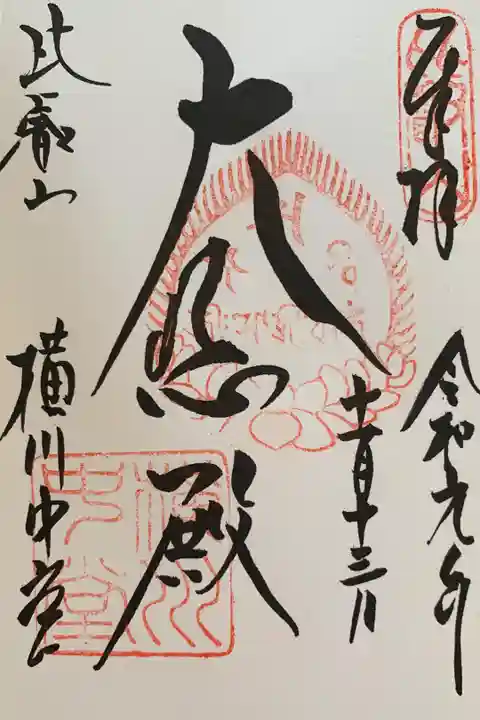 奉拝
令和元年
十一月十三日
大悲殿
比叡山
横川中堂
横川中堂